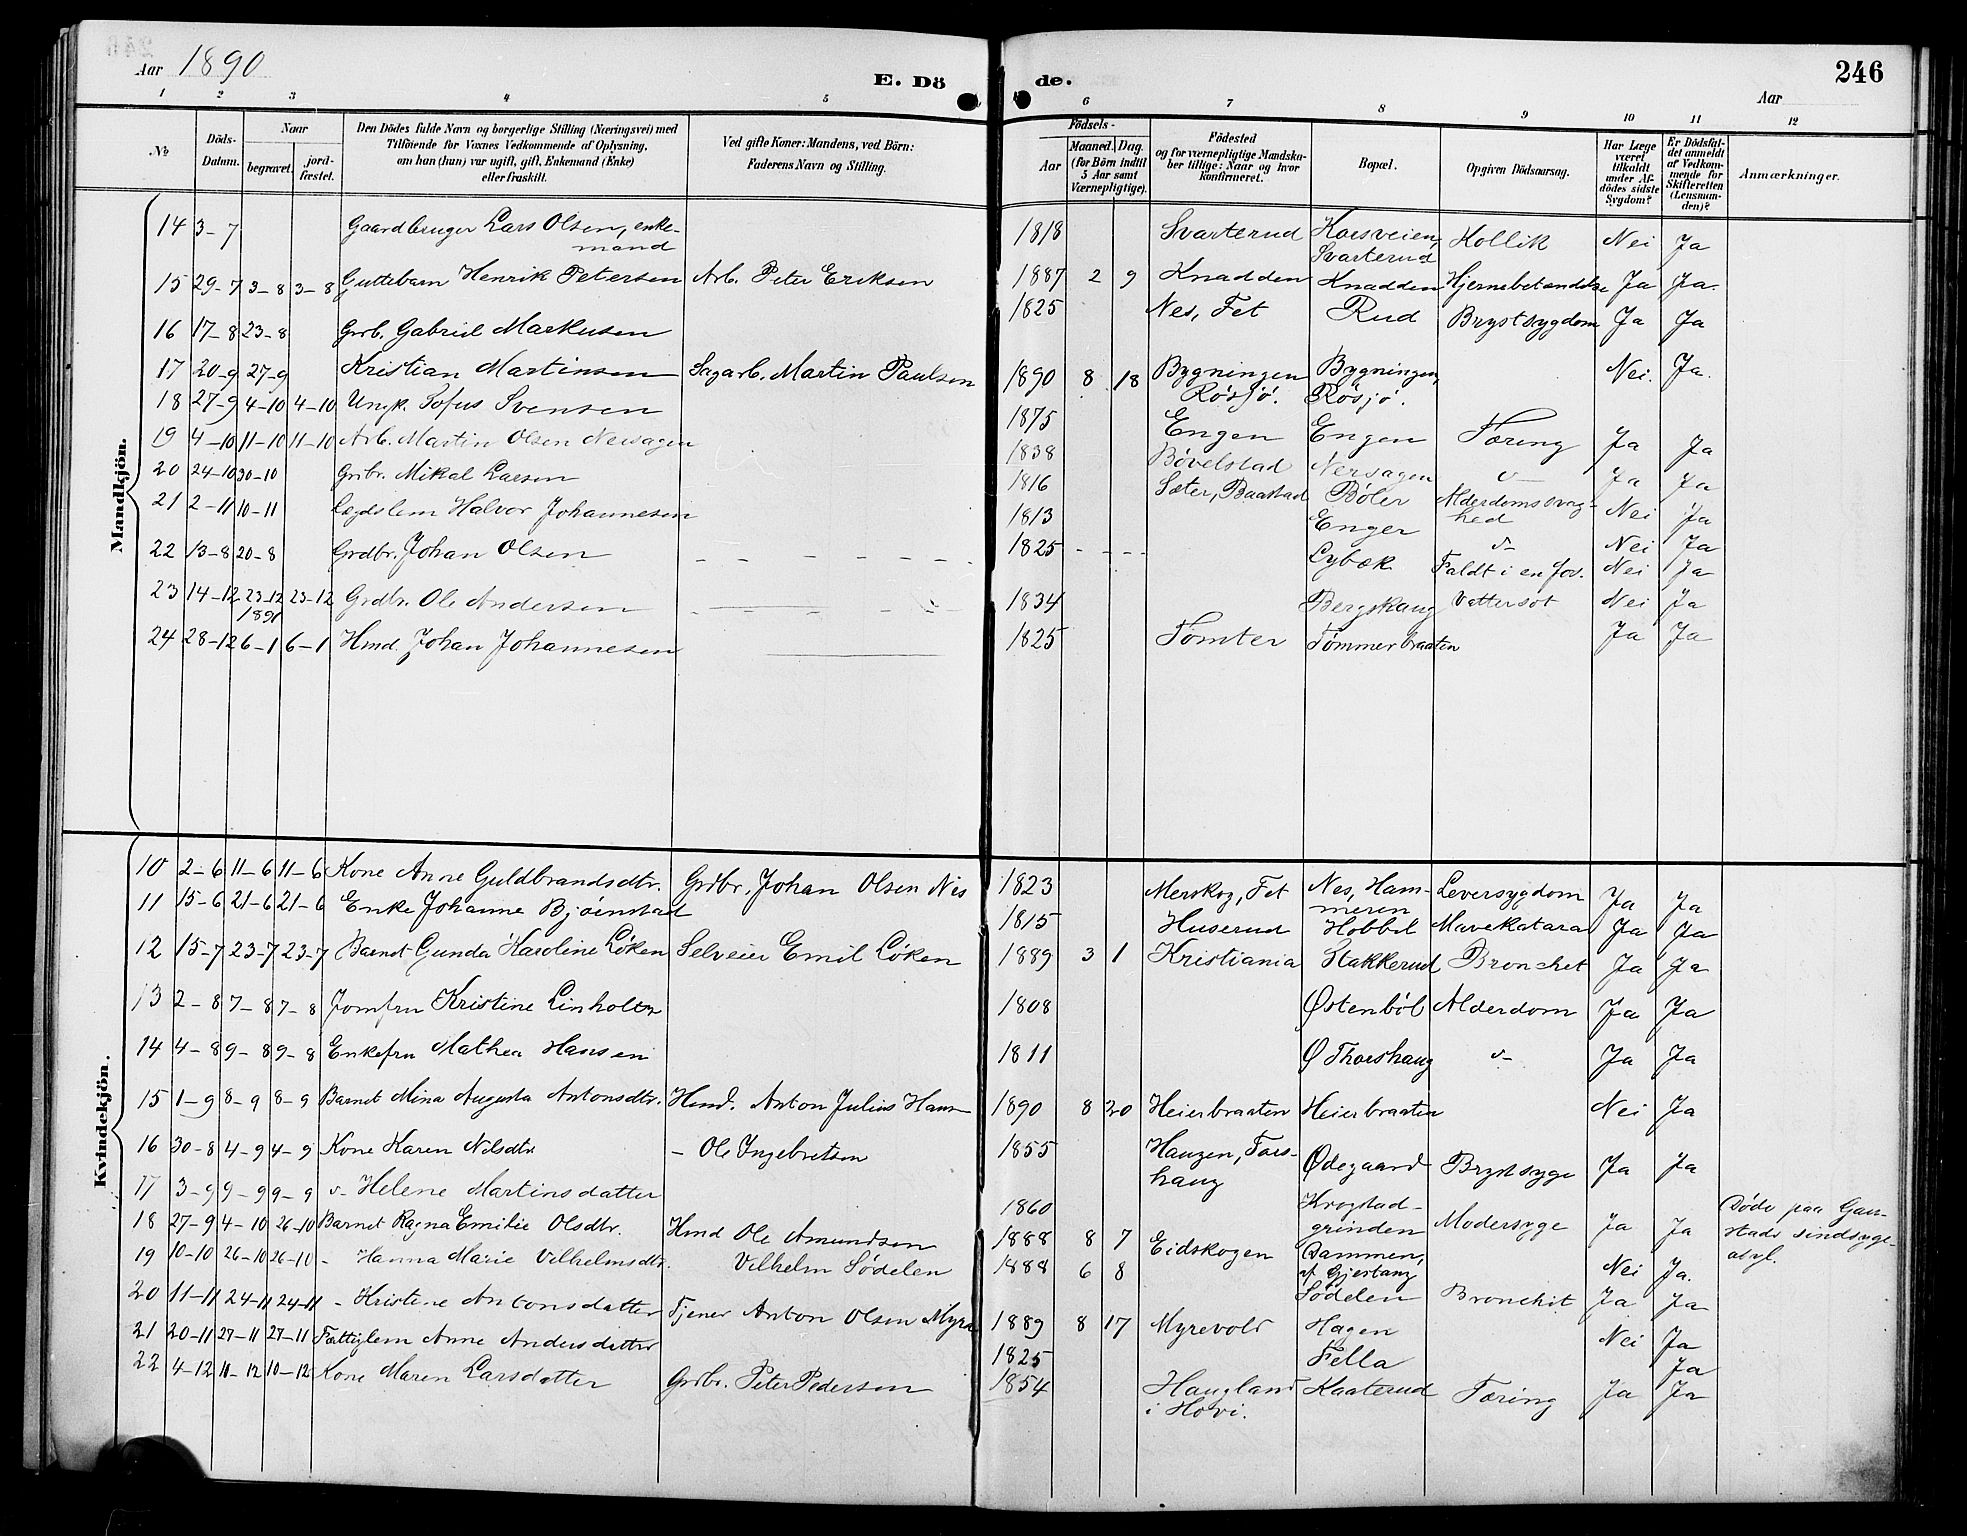 Aar 1890
E. Dö
de.
246
Aar
1 2 3 4 5 6 7 8 9 10 11 12
No
Döds-Datum.
Naar
begravet.
jordfæstet.
Den Dödes fulde Navn og borgerlige Stilling (Næringsvei) med
Tilföiende for Voxnes Vedkommende af Oplysning,
om han (hun) var ugift, gift, Enkemand (Enke)
eller fraskilt.
Ved gifte Koner: Mandens, ved Börn:
Faderens Navn og Stilling.
Födsels-
Aar
Maaned. Dag.
(for Börn indtil
5 Aar samt
Værnepligtige).
Födested
og for værnepligtige Mandska-
ber tillige: Naar og hvor
konfirmeret.
Bopæl.
Opgiven Dödsaarsag.
Har Læge
været
tilkaldt
under Af-
dödes sidste
Sygdom?
Er Dödsfal-
det anmeldt
af Vedkom-
mende for
Skifteretten
(Lensman-
den)?
Anmærkninger.
Mandkjön.
14 3-7 Gaardbruger Lars Olsen, enke-
mand 1818 Svarterud Korsveien,
Svarterud Kollik Nei Ja
15 29-7 3-8 3-8 Guttebarn Henrik Petersen Arb. Peter Eriksen 1887 2 9 Knadden Knadden Hjernebetændelse Ja Ja.
16 17-8 23-8 Grb. Gabriel Markusen 1825 Nes, Fet Rud Brystsygdom Ja Ja
17 20-9 27-9 Kristian Martinsen Sagarb. Martin Paulsen 1890 8 18 Bygningen
Røsjø. Bygningen,
Røsjø. Nei. Ja.
18 27-9 4-10 4-10 Ungk. Sofus Svensen 1875 Engen Engen Tæring Ja Ja
19 4-10 11-10 11-10 Arb. Martin Olsen Nersagen 1838 Bøvelstad Nersagen Ja Ja
20 24-10 30-10 Grbr. Mikal Larsen 1816 Sæter, Baastad Bøler Alderdomssvag-
hed Nei Ja
21 2-11 10-11 Lægdslem Halvor Johannesen 1813 Enger Nei Ja
22 13-8 20-8 Grdbr. Johan Olsen 1825 Lybæk Faldt i en Nei Ja
23 14-12 23-12 23-12 Grdbr. Ole Andersen 1834 Bergshaug Vattersot Nei Ja
1891
24 28-12 6-1 6-1 Hmd. Johan Johannesen 1825 Tomter Tømmerbraaten Ja Ja
Kvindekjön.
10 2-6 11-6 11-6 Kone Anne Guldbrandsdtr. Grdbr. Johan Olsen Nes 1823 Merskog, Fet Nes, Ham-
meren Leversygdom Ja Ja
11 15-6 21-6 21-6 Enke Johanne Bjørnstad 1815 Huserud Hobbøl Mavekatarr Ja Ja
12 15-7 23-7 23-7 Barnet Gunda Karoline Løken Selveier Emil Løken 1889 3 1 Kristiania Stakkerud Bronchit Ja Ja
13 2-8 7-8 7-8 Jomfru Kristine 1808 Østenbøl Alderdom Ja Ja
14 4-8 9-8 9-8 Enkefru Mathea Hansen 1811 Ø Thorshaug Ja Ja
15 1-9 8-9 8-9 Barnet Mina Augusta Antonsdtr. Hmd. Anton Julius 1890 8 20 Heierbraaten Heierbraaten Nei Ja
16 30-8 4-9 4-9 Kone Karen Nilsdtr. - Ole Ingebretsen 1855 Haugen, Tors-
haug Ødegaard Brystsyge Ja Ja
17 3-9 9-9 9-9 Helene Martinsdatter 1860 Krogstad-
grinden Modersyge Ja Ja Døde paa Gau-
stads sindsyge-
asyl.
18 27-9 4-10 26-10 Barnet Ragna Emilie Olsdtr. Hmd Ole Amundsen 1888 8 7 Eidskogen Dammen,
Gjestang Nei Ja.
19 10-10 26-10 26-10 - Hanna Marie Vilhelmsdtr. Vilhelm Sødelen 1888 6 8 Sødelen Bronchit Ja Ja
20 11-11 24-11 24-11 - Kristine Antonsdatter Tjener Anton Olsen Myra 1889 8 17 Myrevold Hagen Nei Ja
21 20-11 27-11 27-11 Fattiglem Anne Andersdatter 1825 Fella Ja
22 4-12 10-12 10-12 Kone Maren Larsdatter Grdbr. Peter Pedersen 1854 Haugland
i Hovi. Kaaterud Tæring Ja Ja